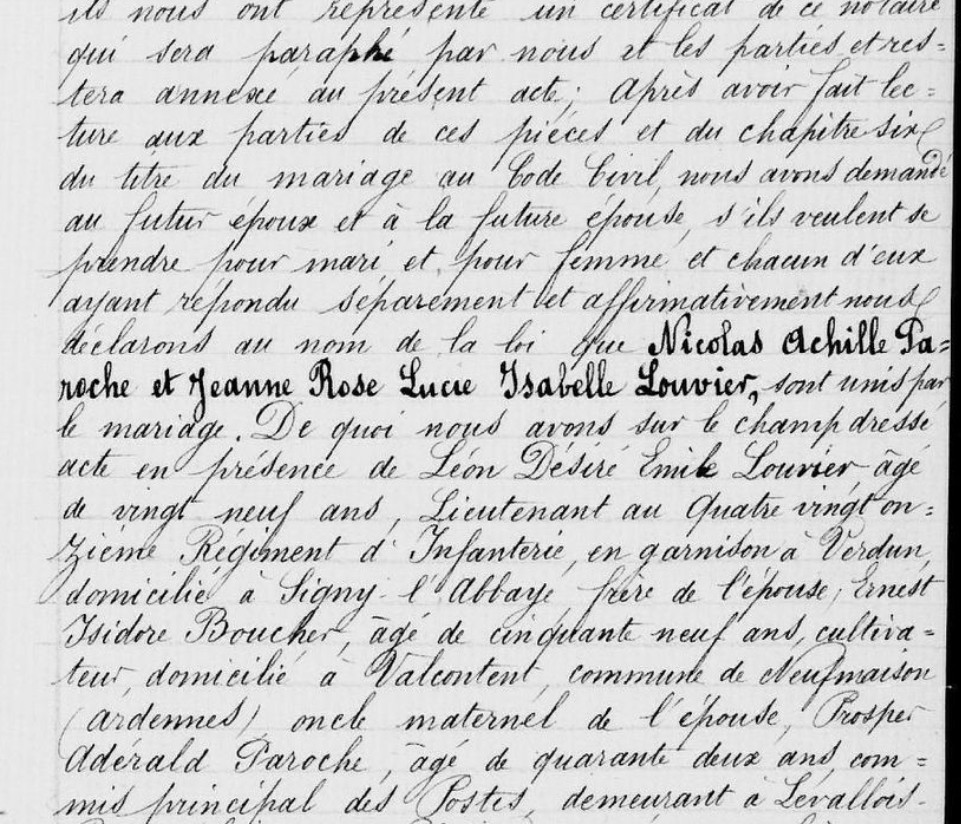 ils nous ont représenté un certificat de ce notaire
qui sera paraphé par nous et les parties et res=
tera annexé au présent acte; Après avoir fait lec=
ture aux parties de ces pièces et du chapitre six
du titre du mariage au Code Civil, nous avons demandé
au futur époux et à la future épouse, s'ils veulent se
prendre pour mari et pour femme et chacun d'eux
ayant répondu séparement et affirmativement nous
déclarons au nom de la loi que Nicolas Achille Pa=
roche et Jeanne Rose Lucie Isabelle Louvier, sont unis par
le mariage. De quoi nous avons sur le champ dressé
acte en présence de Léon Désiré Emile Louvier, âgé
de vingt neuf ans, Lieutenant au Quatre vingt on=
zième Régiment d'Infanterie, en garnison à Verdun,
domicilié à Signy-l'Abbaye, frère de l'épouse; Ernest
Isidore Boucher, âgé de cinquante neuf ans, cultiva=
teur, domicilié à Valcontent, commune de Neufmaison
(Ardennes) oncle maternel de l'épouse, Prosper
Adérald Paroche, âgé de quarante deux ans, com=
mis principal des Postes, demeurant à Levallois-